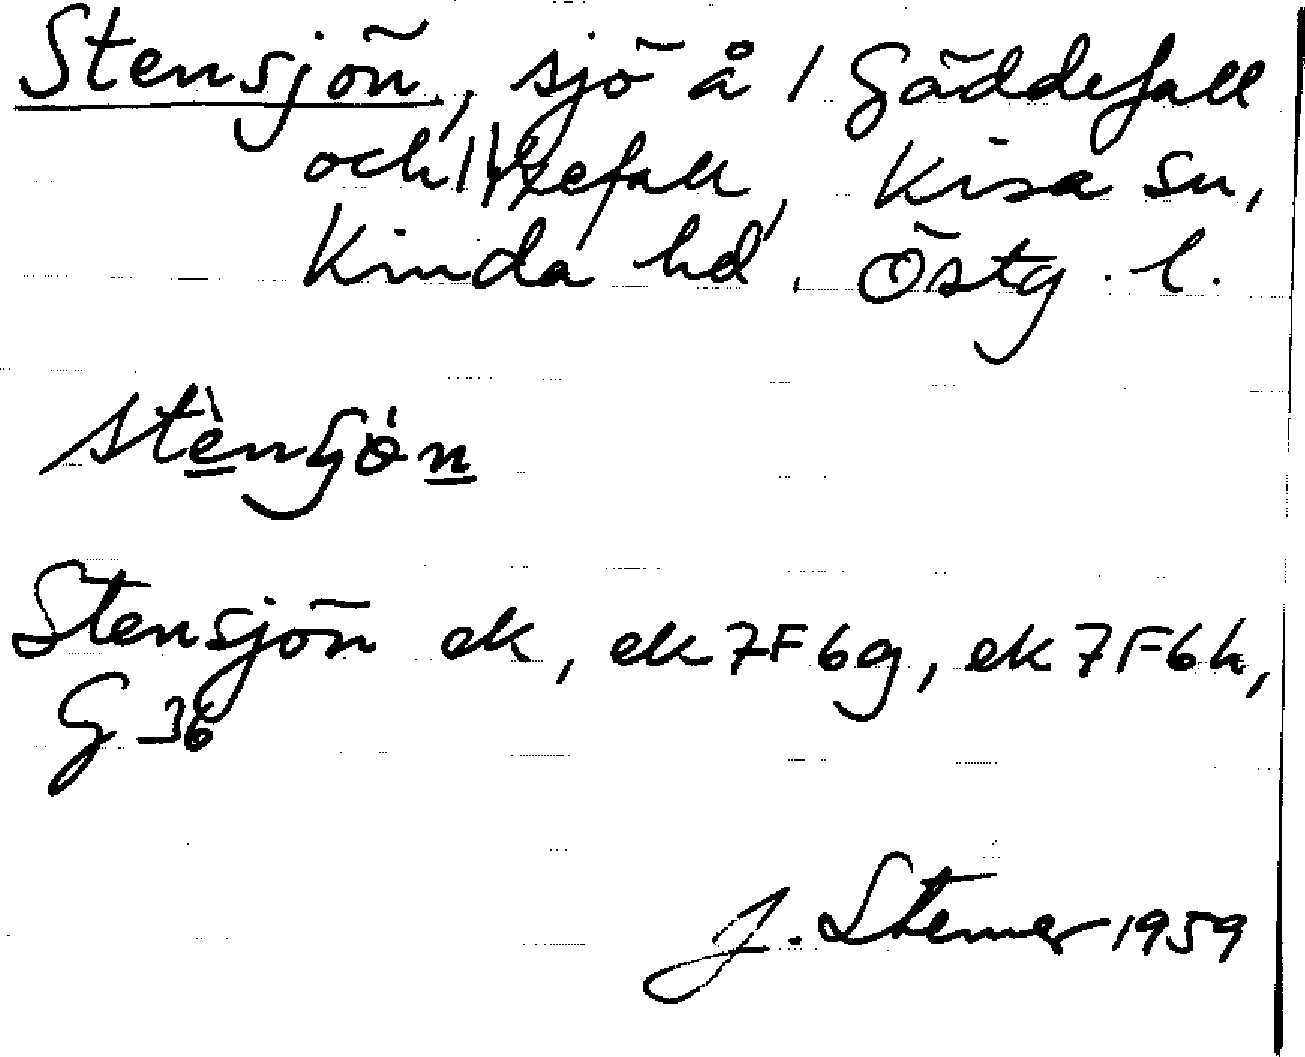 Stensjön, sjö å 1 Gäddefall
och 1 Kisa sn,
Kinda hd, Östg. l.
Stensjön ek, ek 7F6g, ek 7F6h,
G 36
J. 1959